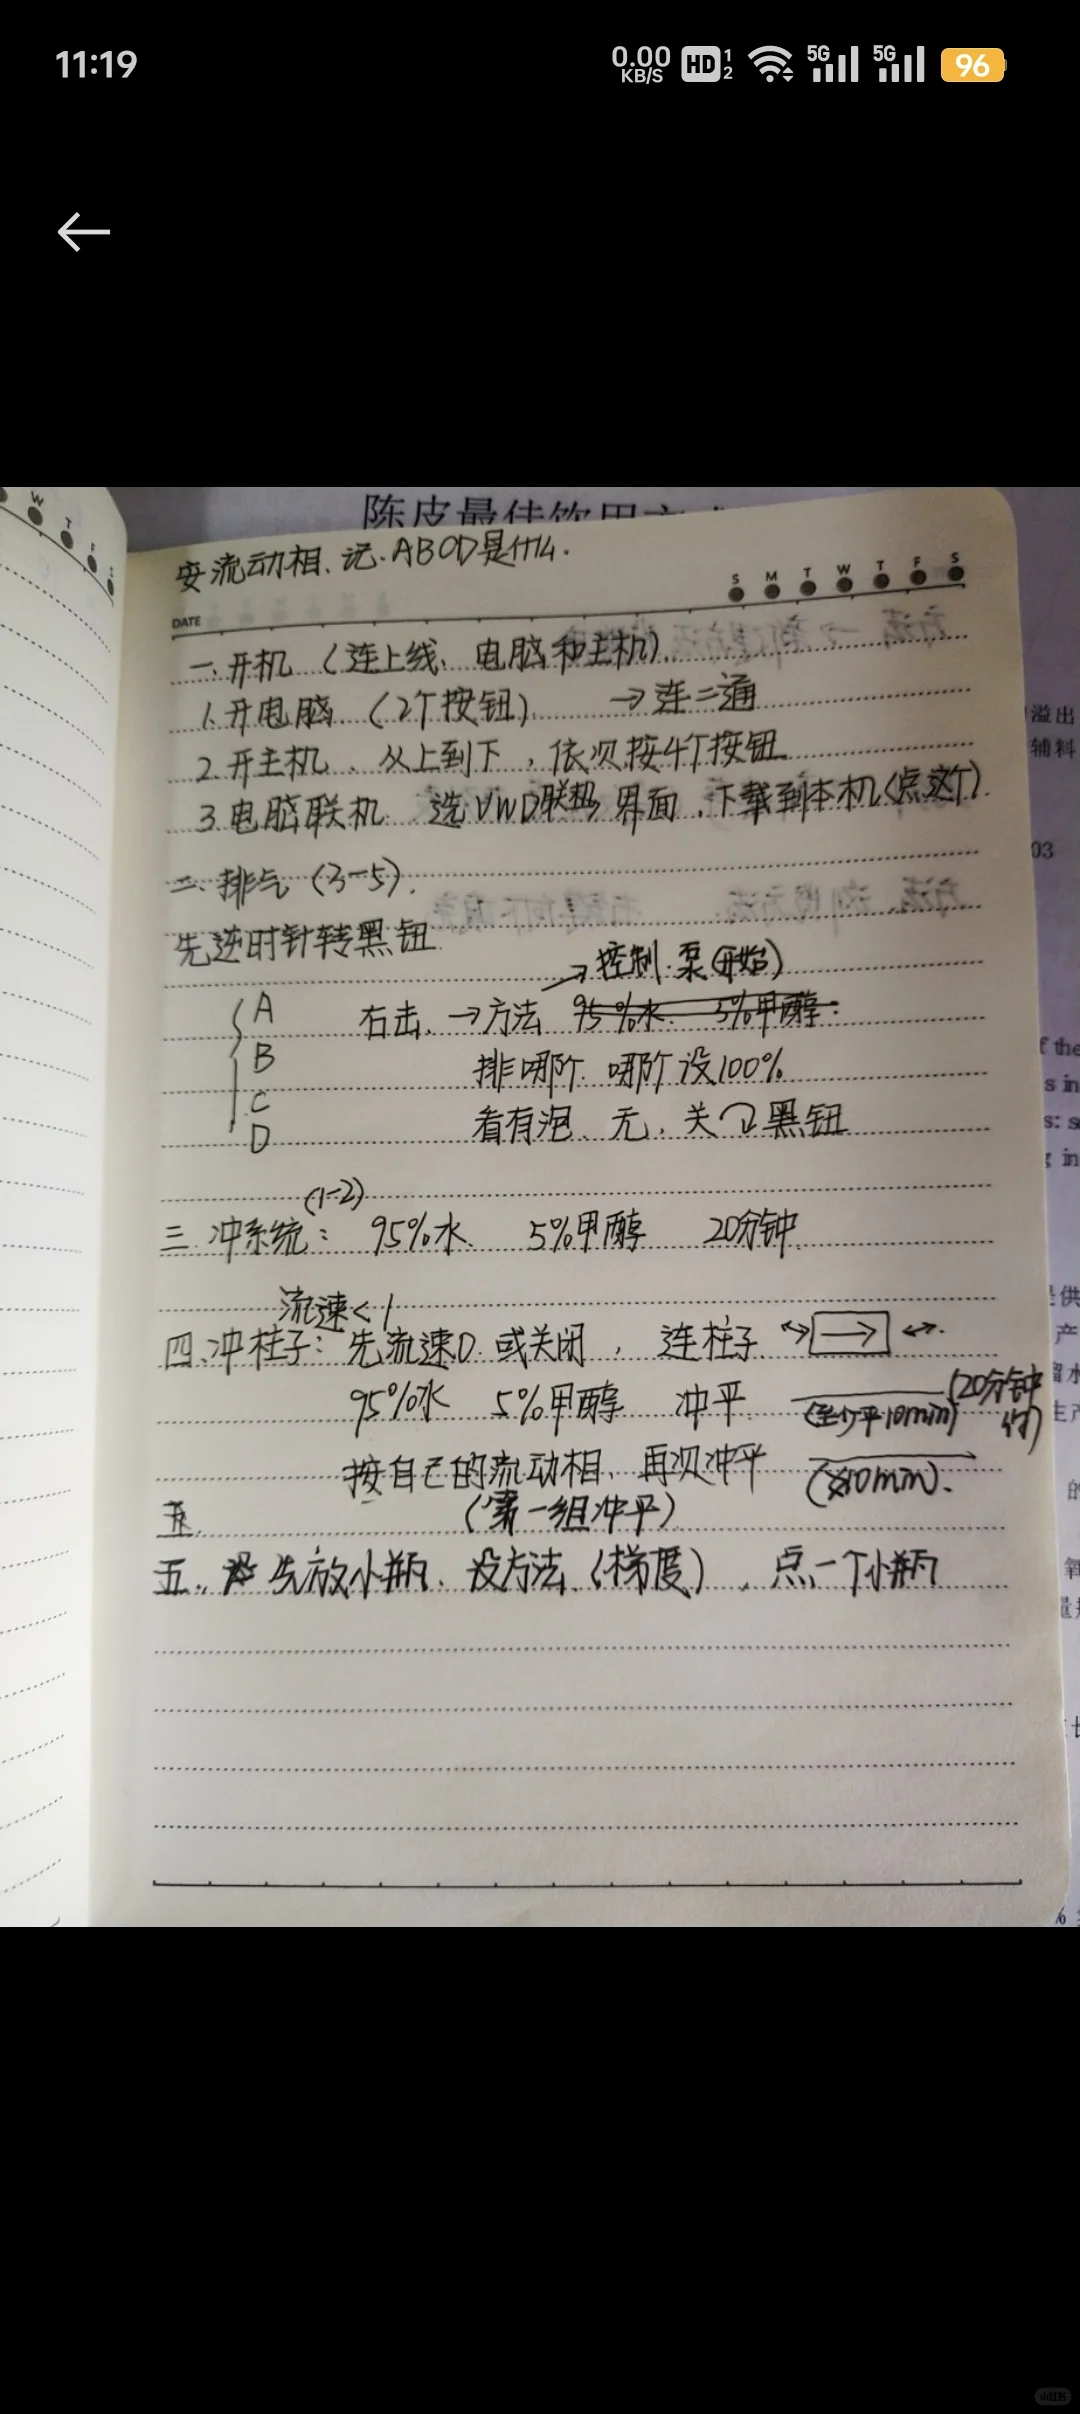 11:19
0.00 KB/S HD 1 2 5G 5G 96
陈皮最佳饮用方
安流动相、记.ABCD是什么.
S M T W T F S
DATE
一.开机（连上线、电脑和主机）
1.开电脑（2个按钮） →连二通
2.开主机、从上到下，依次按4个按钮
3.电脑联机 选VWD联机界面，下载到本机（点这个）.
二.排气（3-5）.
先逆时针转黑钮
→控制.泵（开始）
A 右击.→方法 95%水 5%甲醇.
B 排哪阶 哪阶设100%
C
看有泡、无，关 黑钮
D
(1-2)
三 冲系统： 95%水 5%甲醇 20分钟
流速<1
四.冲柱子：先流速0.或关闭，连柱子 → 
95%水 5%甲醇 冲平 (至少平10min) (20分钟
按自己的流动相、再次冲平 (10min).
五. (第一组冲平)
五. 先放小瓶、设方法（梯度），点一个小瓶
溢出
辅料
03
f the
s in
提供
产
留水
生产
的
氧
小红书